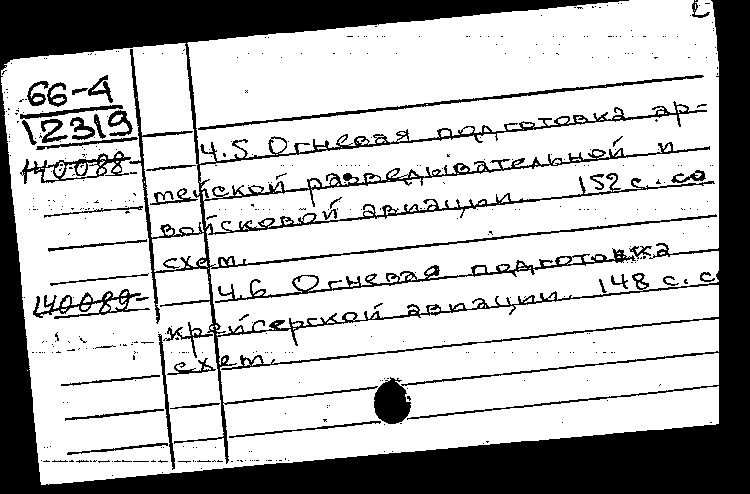 66-4
12319
140088
Ч.5. Огневая подготовка ар=
мейской разведывательной и
войсковой авиации. 152 с. со
схем.
140089
Ч.6 Огневая подготовка
крейсерской авиации. 148 с. со
схем.